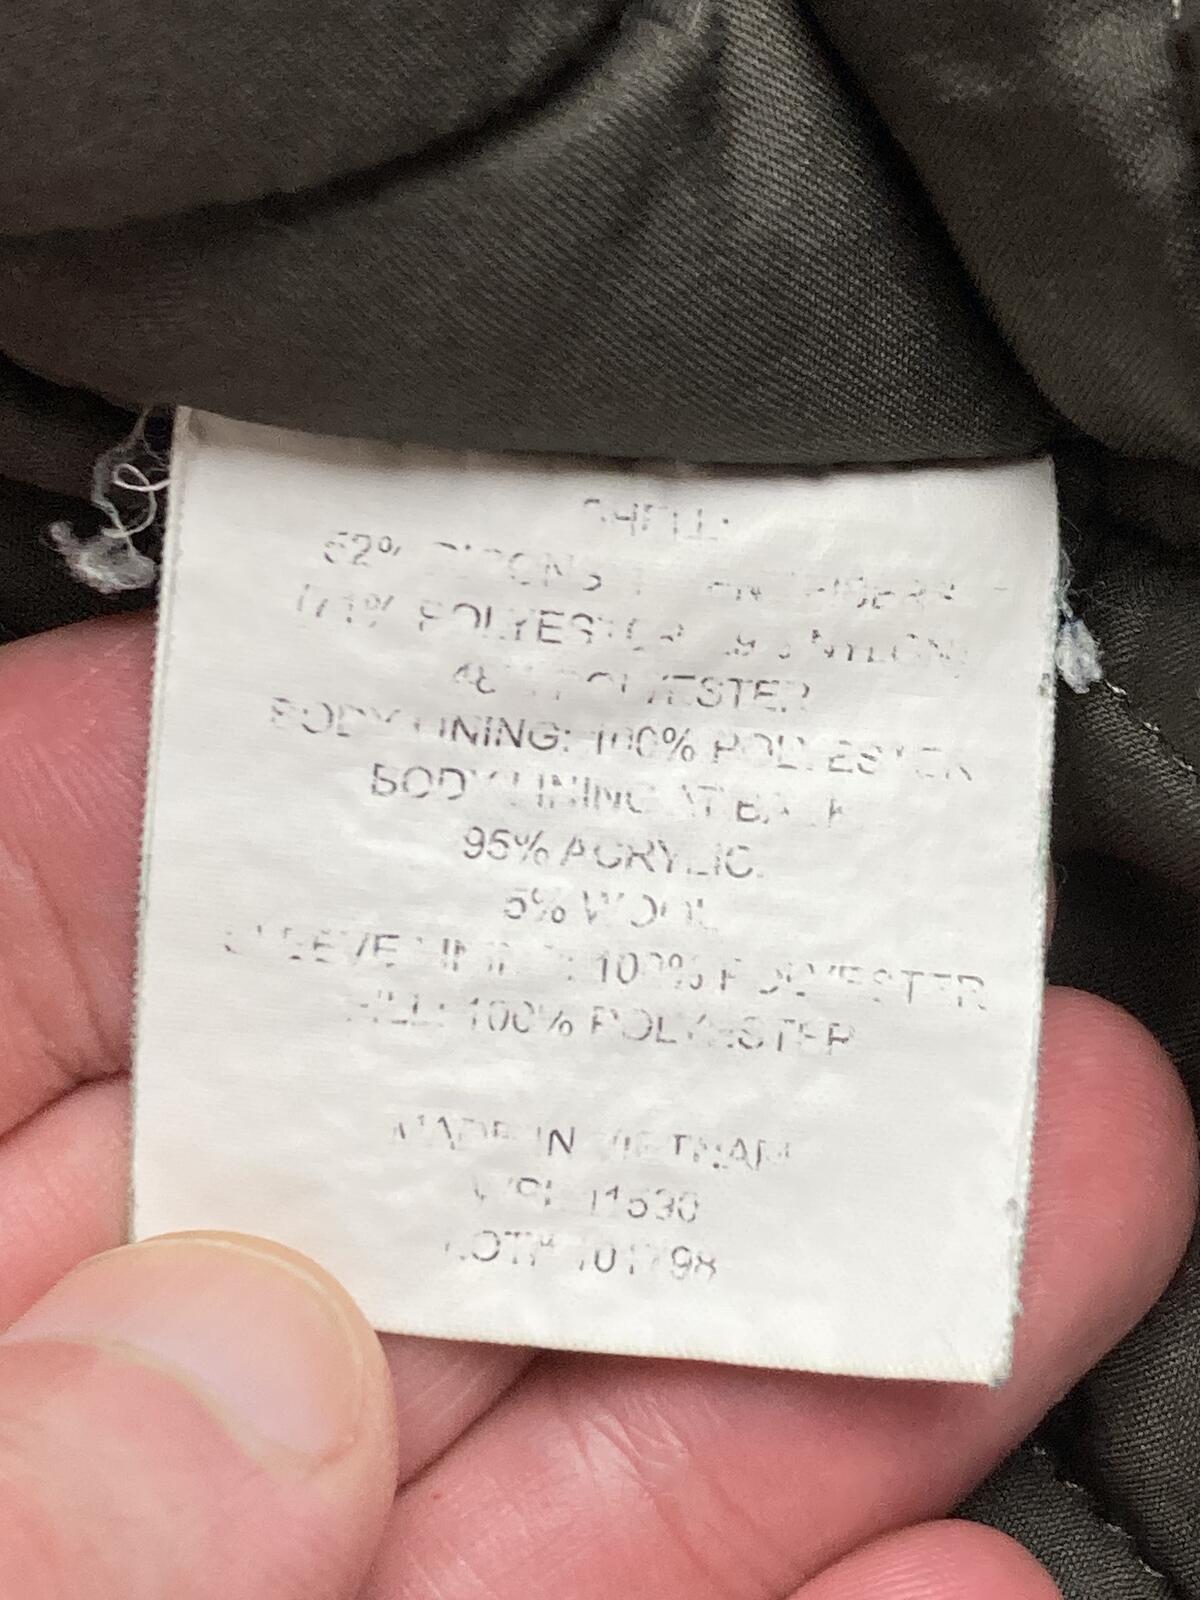 SHELL:
52%
(71% POLYESTER NYLON)
48% POLYESTER
BODY LINING: 100% POLYESTER
BODY LINING AT BACK
95% ACRYLIC.
5% WOOL
SLEEVE LINING: 100% POLYESTER
FILL: 100% POLYESTER
MADE IN VIETNAM
WPL 11530
LOT# 101798